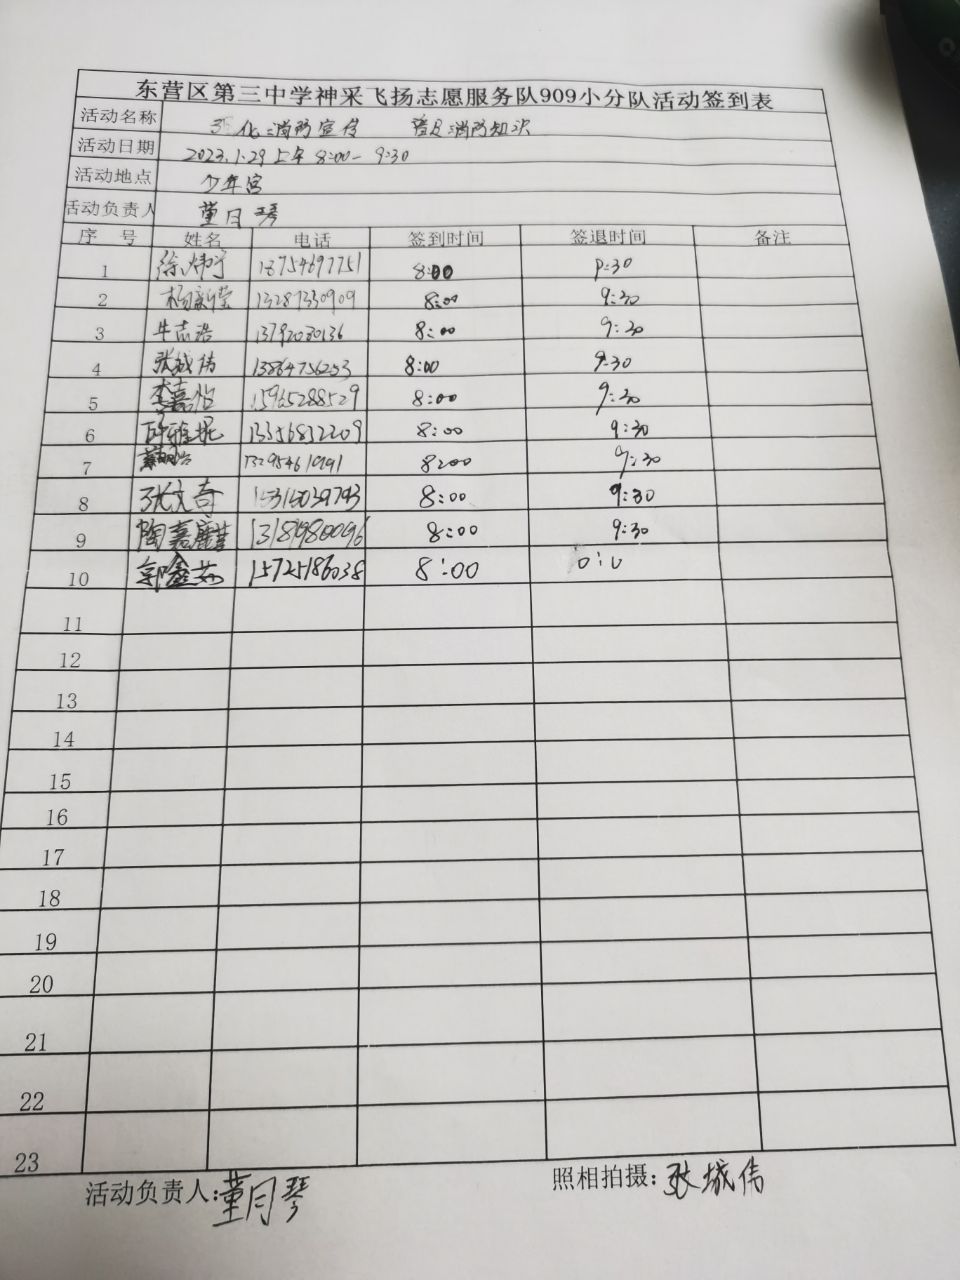 东营区第三中学神采飞扬志愿服务队909小分队活动签到表
活动名称 强化消防宣传 普及消防知识
活动日期 2023.1.29上午8:00-9:30
活动地点 少年宫
活动负责人 董月琴
序 号 姓名 电话 签到时间 签退时间 备注
1 徐炜宁 18754697751 8:00 9:30
2 杨新莹 13287330909 8:00 9:30
3 牛志浩 13792080136 8:00 9:30
4 张城伟 13864756253 8:00 9:30
5 李嘉怡 15965288529 8:00 9:30
6 薛雅妮 13356832209 8:00 9:30
7 13295461991 8:00 9:30
8 张文奇 15315039793 8:00 9:30
9 陶嘉麒 13181980096 8:00 9:30
10 郭鑫茹 15725186038 8:00
11
12
13
14
15
16
17
18
19
20
21
22
23
活动负责人:董月琴 照相拍摄:张城伟